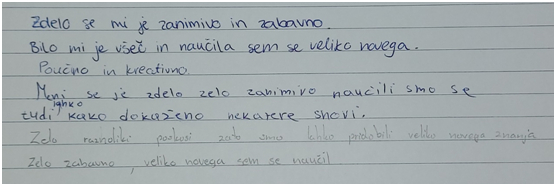 Zdelo se mi je zanimivo in zabavno.
Bilo mi je všeč in naučila sem se veliko novega.
Poučno in kreativno.
Meni se je zdelo zelo zanimivo naučili smo se
lahko
tudi kako dokaženo nekatere snovi.
Zelo raznoliki poskusi zato smo lahko pridobili veliko novega znanja
Zelo zabavno, veliko novega sem se naučil